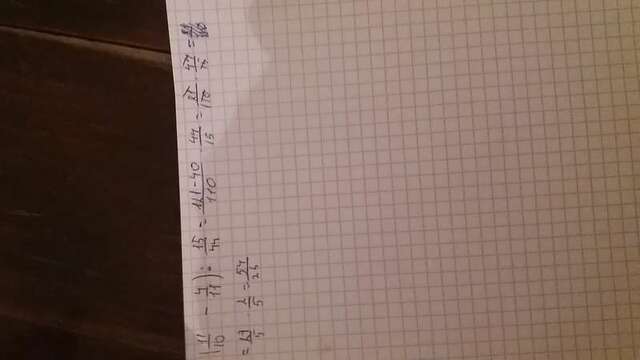 (11/10 - 4/11) : 15/44 = 121-40/110 · 44/15 = 81/110 · 44/15 =
= 27/5 · 2/5 = 54/25